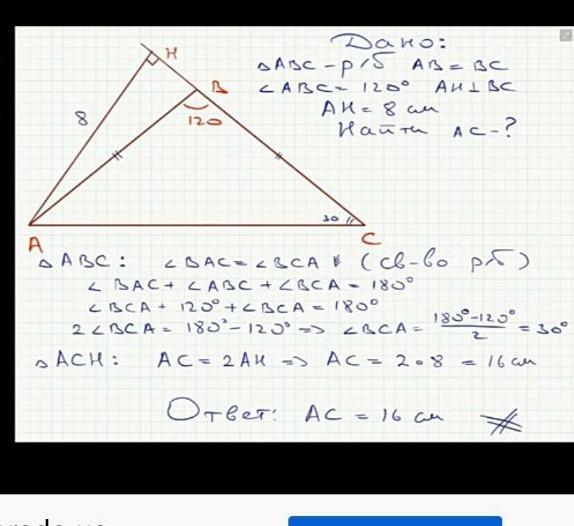 Дано:
△ABC - р/б AB = BC
∠ABC = 120° AH ⊥ BC
AH = 8 см
Найти AC - ?
H
B
8
120
30
A
C
△ABC: ∠BAC = ∠BCA (св-во рб)
∠BAC + ∠ABC + ∠BCA = 180°
∠BCA + 120° + ∠BCA = 180°
2∠BCA = 180° - 120° => ∠BCA = (180° - 120°)/2 = 30°
△ACH: AC = 2AH => AC = 2 · 8 = 16 см
Ответ: AC = 16 см